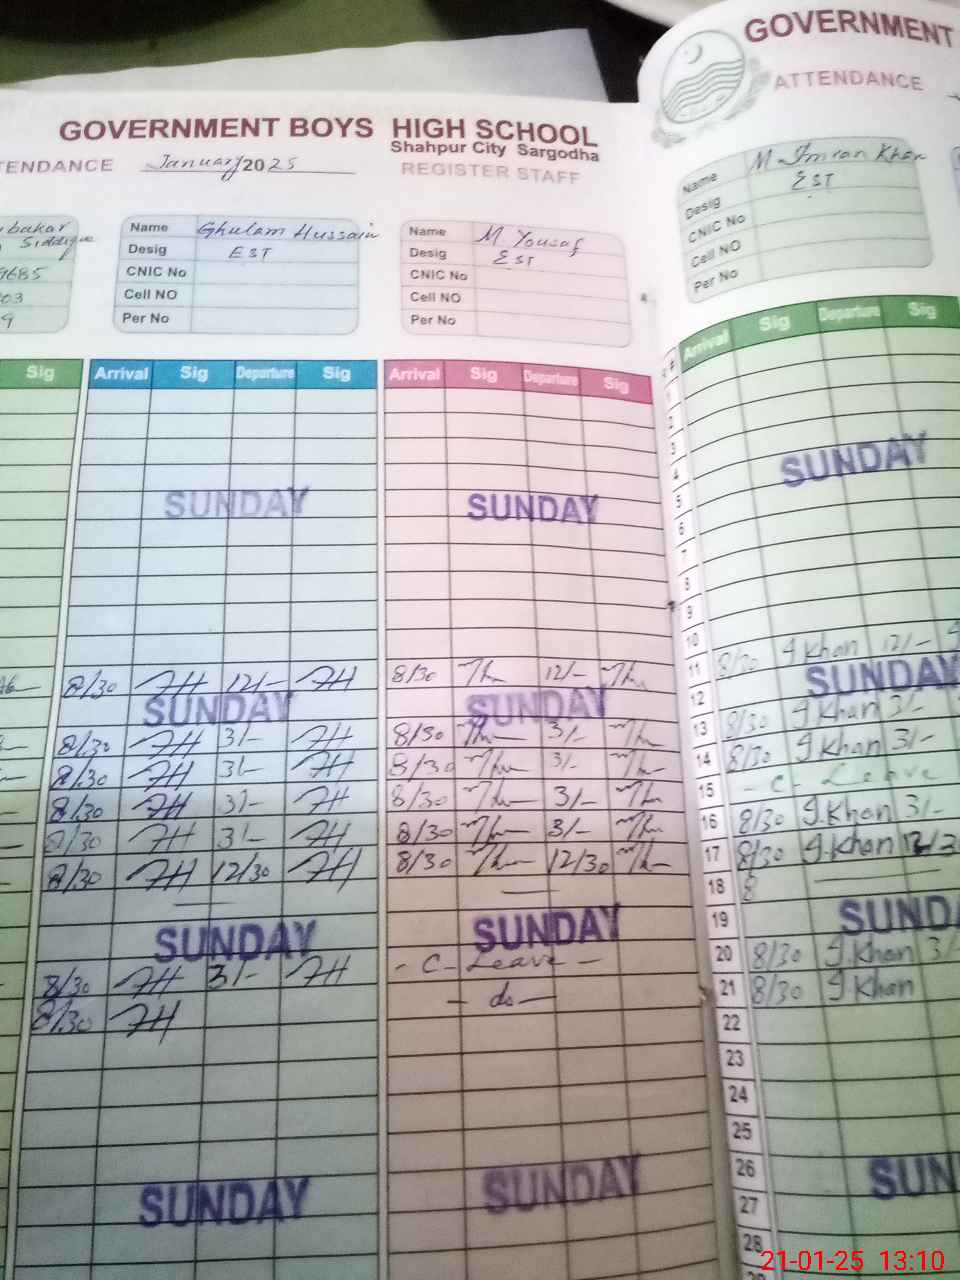 GOVERNMENT BOYS HIGH SCHOOL
Shahpur City Sargodha
TENDANCE January 2025 REGISTER STAFF
bakar
Siddique
9685
03
9
Name Ghulam Hussain
Desig EST
CNIC No
Cell NO
Per No
Name M Yousaf
Desig EST
CNIC No
Cell NO
Per No
Sig Arrival Sig Departure Sig Arrival Sig Departure Sig
SUNDAY SUNDAY
8/30 FH 12/- FH 8/30 12/-
SUNDAY SUNDAY
8/30 FH 3/- FH 8/30 3/-
8/30 FH 3/- FH 8/30 3/-
8/30 FH 3/- FH 8/30 3/-
8/30 FH 3/- FH 8/30 3/-
8/30 FH 12/30 FH 8/30 12/30
SUNDAY SUNDAY
8/30 FH 3/- FH - C - Leave -
8/30 FH - do -
SUNDAY SUNDAY
GOVERNMENT
ATTENDANCE
Name M Imran Khan
Desig EST
CNIC No
Cell NO
Per No
Arrival Sig Departure Sig
1
2
3
4 SUNDAY
5
6
7
8
9
10
11 8/30 I.Khan 12/-
12 SUNDAY
13 8/30 I.Khan 3/-
14 8/30 I.Khan 3/-
15 - C - Leave
16 8/30 I.Khan 3/-
17 8/30 I.Khan 12/30
18 8
19 SUNDA
20 8/30 I.Khan 3/-
21 8/30 I.Khan
22
23
24
25
26 SUN
27
28
21-01-25 13:10